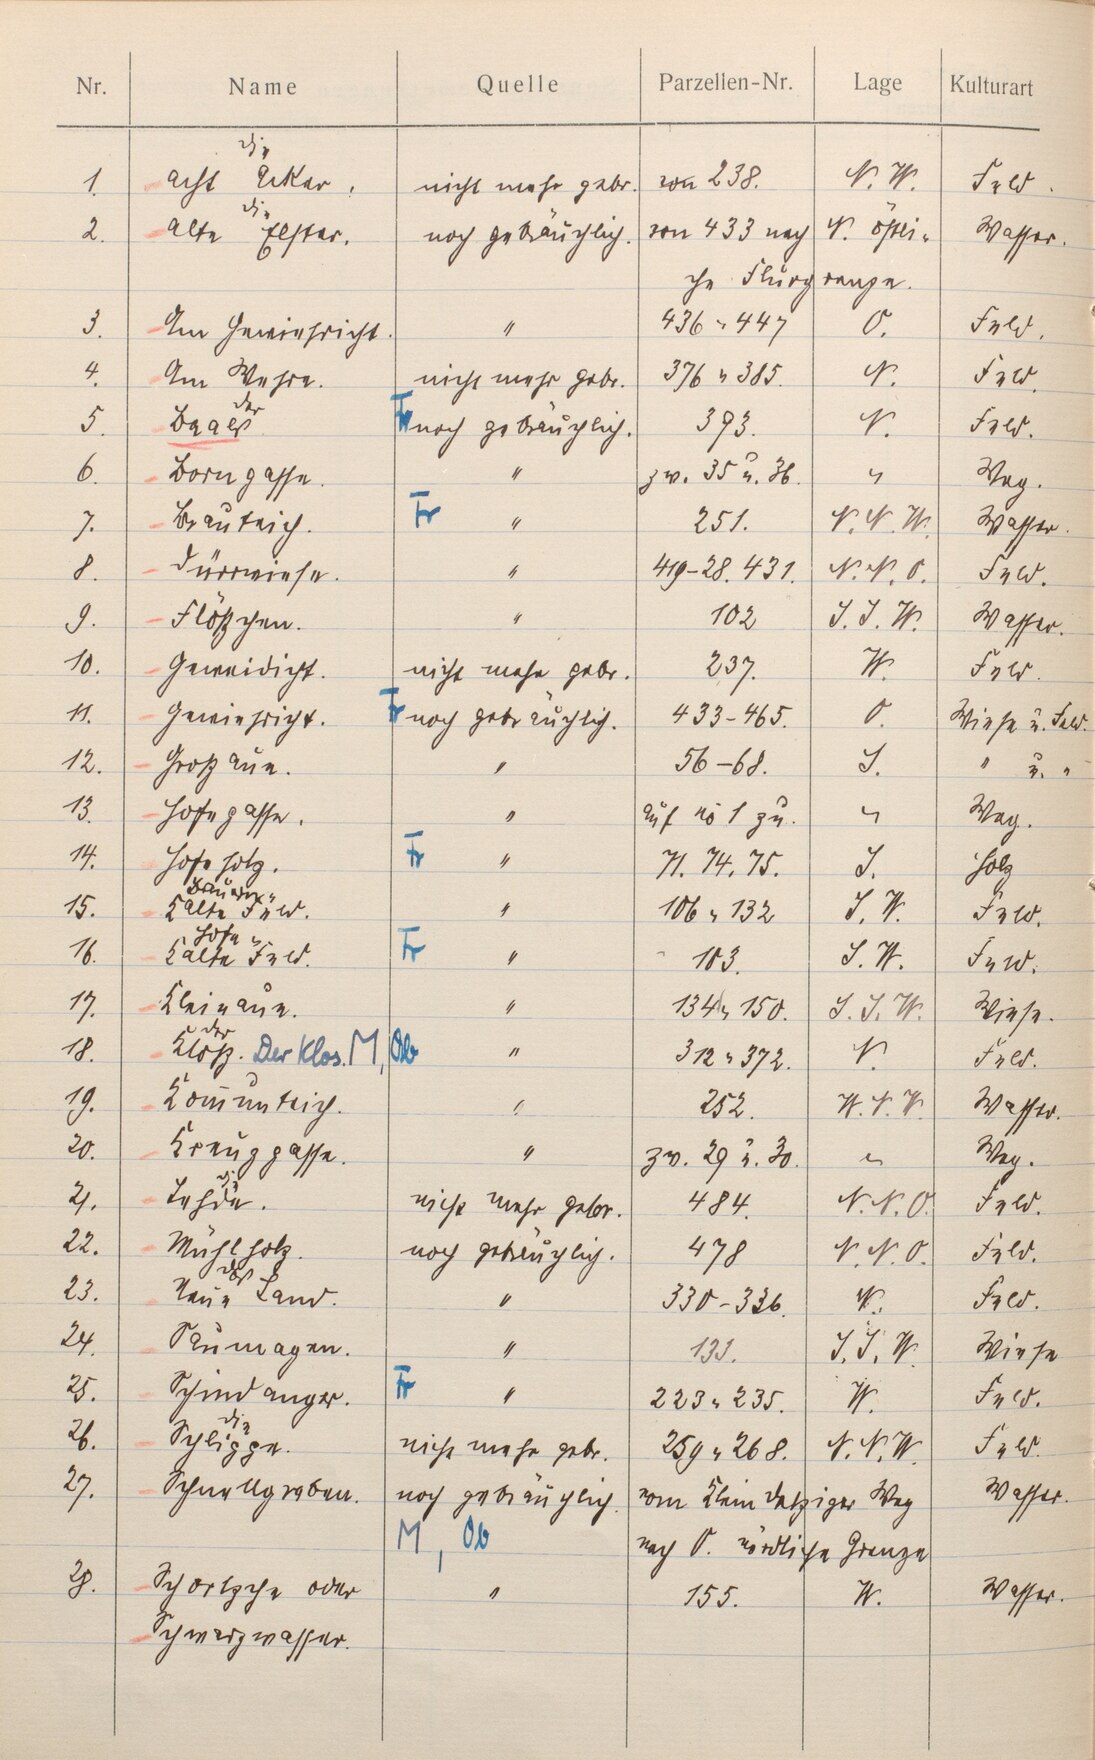 Nr. Name Quelle Parzellen-Nr. Lage Kulturart
die
1. Acht Äcker. nicht mehr gebr. von 238. N. W. Feld.
die
2. Alte Elster. noch gebräuchlich. von 433 nach N. östli- Wasser.
che Flurgrenze.
3. Am Gewiehricht. " 436 " 447 O. Feld.
4. Am Wehre. nicht mehr gebr. 376 " 385. N. Feld.
der
5. Baals Fr noch gebräuchlich. 393. N. Feld.
6. Borngasse. " zw. 35 u. 36. " Weg.
7. Brauteich. Fr " 251. N. N. W. Wasser.
8. Dürrwiese. " 419-28. 431. N. N. O. Feld.
9. Flößchen. " 102 S. S. W. Wasser.
10. Geweidicht. nicht mehr gebr. 237. W. Feld.
11. Gewiehricht. Fr noch gebräuchlich. 433-465. O. Wiese u. Feld.
12. Großaue. " 56-68. S. " u. "
13. Hofegasse. " auf No 1 zu. " Weg.
14. Hofeholz. Fr " 71. 74. 75. S. Holz
Bauern-
15. Kalte Feld. " 106 " 132 S. W. Feld.
Hofe-
16. Kalte Feld. Fr " 103. S. W. Feld.
17. Kleinaue. " 134 " 150. S. S. W. Wiese.
der
18. Kloß. Der Klos. M, Ob " 312 " 372. N. Feld.
19. Kom̅unteich. " 252. W. N. W. Wasser.
20. Kreuzgasse. " zw. 29 u. 30. " Weg.
die
21. Lehde. nicht mehr gebr. 484. N. N. O. Feld.
22. Mühlholz. noch gebräuchlich. 478 N. N. O. Feld.
das
23. Neue Land. " 330-336. N. Feld.
24. Saumagen. " 133. S. S. W. Wiese
25. Schindanger. Fr " 223 " 235. W. Feld.
die
26. Schlippe. nicht mehr gebr. 259 " 268. N. N. W. Feld.
27. Schnellgraben. noch gebräuchlich. vom Klein Weg Wasser.
M, Ob nach O. nördliche Grenze
28. Schortzche oder " 155. W. Wasser.
Schwarzwasser.